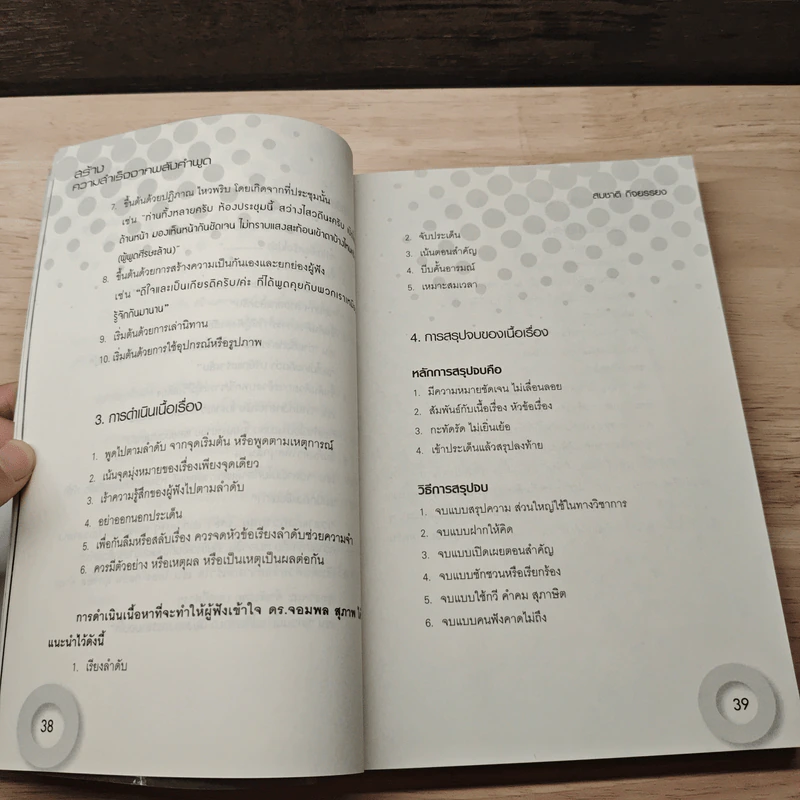 สร้าง
ความสำเร็จจากพลังคำพูด
7. ขึ้นต้นด้วยปฏิภาณ ไหวพริบ โดยเกิดจากที่ประชุมนั้น
เช่น "ท่านทั้งหลายครับ ห้องประชุมนี้ สว่างไสวดีนะครับ
ด้านหน้า มองเห็นหน้ากันชัดเจน ไม่ทราบแสงสะท้อนเข้าตาบ้างไหม
(ผู้พูดศีรษะล้าน)"
8. ขึ้นต้นด้วยการสร้างความเป็นกันเองและยกย่องผู้ฟัง
เช่น "ดีใจและเป็นเกียรติครับ/ค่ะ ที่ได้พูดคุยกับพวกเราเหมือน
รู้จักกันมานาน"
9. เริ่มต้นด้วยการเล่านิทาน
10. เริ่มต้นด้วยการใช้อุปกรณ์หรือรูปภาพ
3. การดำเนินเนื้อเรื่อง
1. พูดไปตามลำดับ จากจุดเริ่มต้น หรือพูดตามเหตุการณ์
2. เน้นจุดมุ่งหมายของเรื่องเพียงจุดเดียว
3. เร้าความรู้สึกของผู้ฟังไปตามลำดับ
4. อย่าออกนอกประเด็น
5. เพื่อกันลืมหรือสลับเรื่อง ควรจดหัวข้อเรียงลำดับช่วยความจำ
6. ควรมีตัวอย่าง หรือเหตุผล หรือเป็นเหตุเป็นผลต่อกัน
การดำเนินเนื้อหาที่จะทำให้ผู้ฟังเข้าใจ ดร.จอมพล สุภาพ
แนะนำไว้ดังนี้
1. เรียงลำดับ
38
สมชาติ กิจยรรยง
2. จับประเด็น
3. เน้นตอนสำคัญ
4. บีบคั้นอารมณ์
5. เหมาะสมเวลา
4. การสรุปจบของเนื้อเรื่อง
หลักการสรุปจบคือ
1. มีความหมายชัดเจน ไม่เลื่อนลอย
2. สัมพันธ์กับเนื้อเรื่อง หัวข้อเรื่อง
3. กะทัดรัด ไม่เยิ่นเย้อ
4. เข้าประเด็นแล้วสรุปลงท้าย
วิธีการสรุปจบ
1. จบแบบสรุปความ ส่วนใหญ่ใช้ในทางวิชาการ
2. จบแบบฝากให้คิด
3. จบแบบเปิดเผยตอนสำคัญ
4. จบแบบชักชวนหรือเรียกร้อง
5. จบแบบใช้กวี คำคม สุภาษิต
6. จบแบบคนฟังคาดไม่ถึง
39